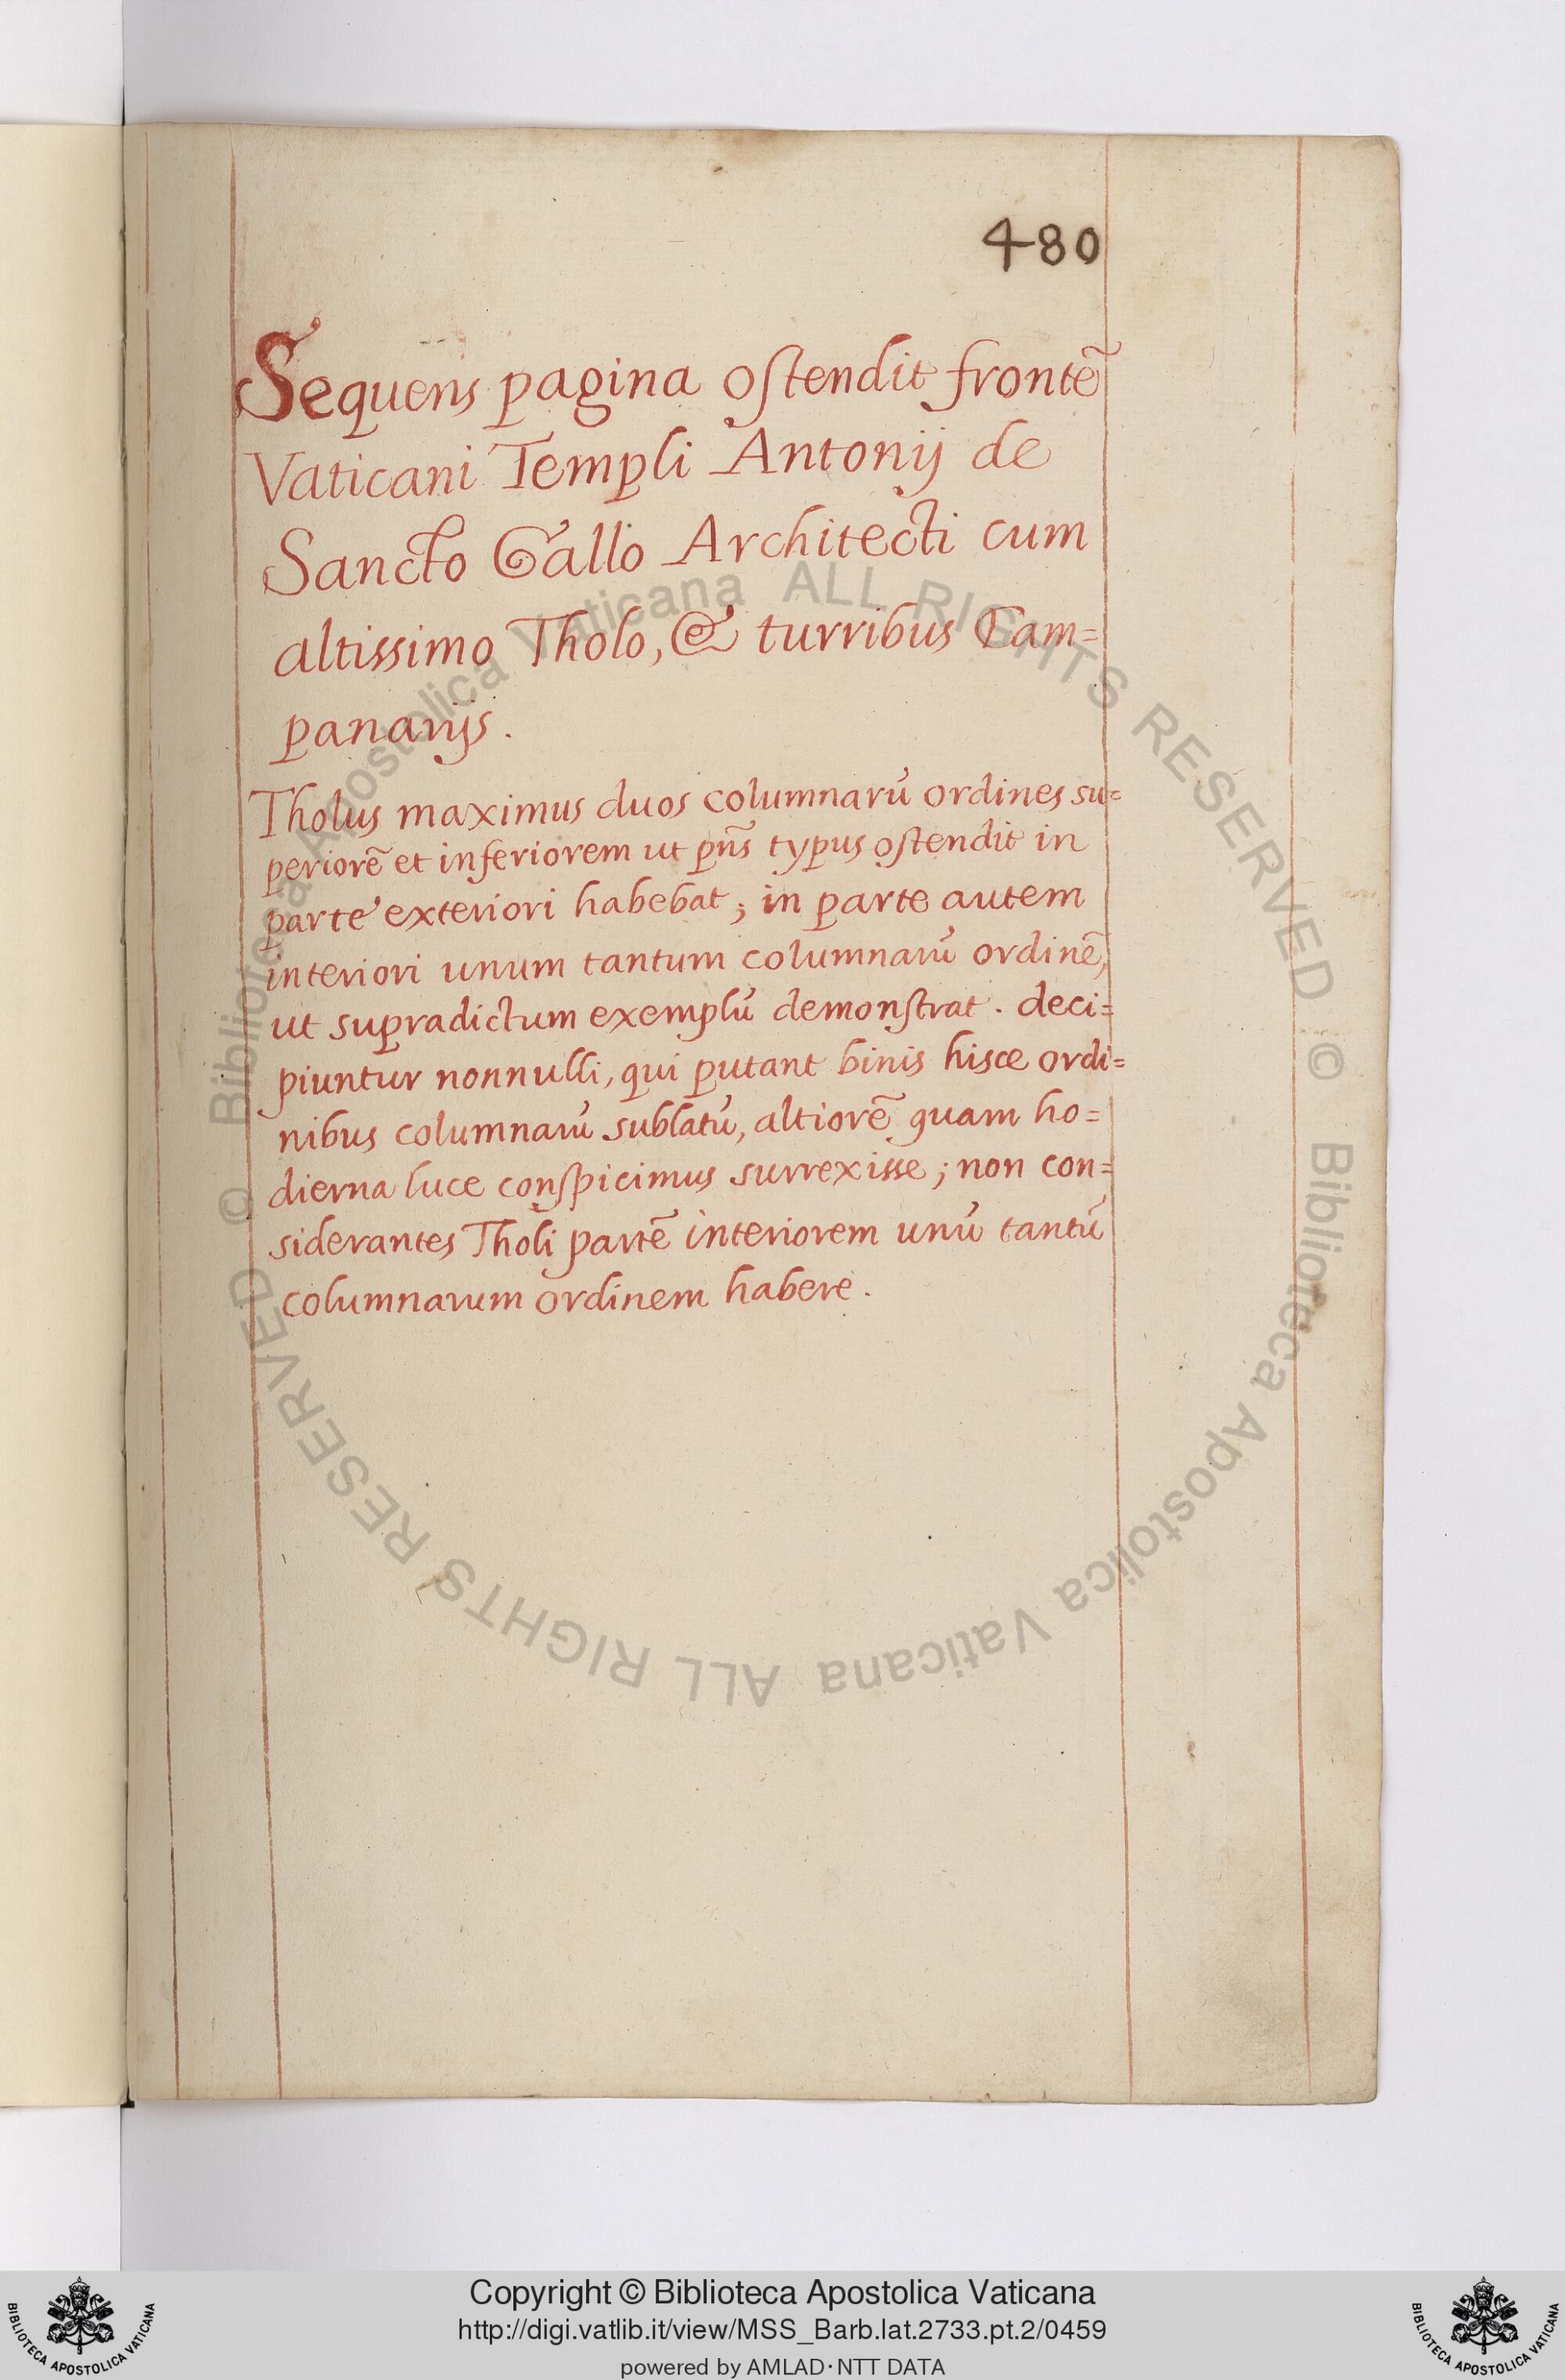 480
Sequens pagina ostendit frontẽ
Vaticani Templi Antonij de
Sancto Gallo Architecti cum
altissimo Tholo, & turribus Cam=
panarijs.
Tholus maximus duos columnarũ ordines su=
periorẽ et inferiorem ut pñs typus ostendit in
parte exteriori habebat; in parte autem
interiori unum tantum columnarũ ordinẽ,
ut supradictum exemplũ demonstrat. deci=
piuntur nonnulli, qui putant binis hisce ordi=
nibus columnarũ sublatũ, altiorẽ quam ho=
dierna luce conspicimus surrexisse; non con=
siderantes Tholi partẽ interiorem unũ tantũ
columnarum ordinem habere.
© Biblioteca Apostolica Vaticana ALL RIGHTS RESERVED
© Biblioteca Apostolica Vaticana ALL RIGHTS RESERVED
Copyright © Biblioteca Apostolica Vaticana
http://digi.vatlib.it/view/MSS_Barb.lat.2733.pt.2/0459
powered by AMLAD·NTT DATA
BIBLIOTECA APOSTOLICA VATICANA
BIBLIOTECA APOSTOLICA VATICANA